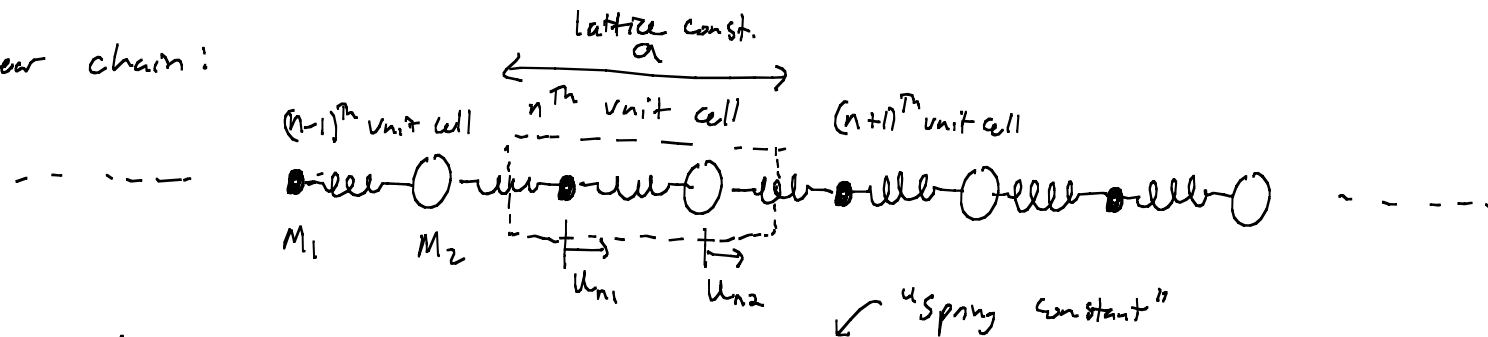 lattice const.
a
ear chain:
(n-1)ᵀʰ unit cell nᵀʰ unit cell (n+1)ᵀʰ unit cell
M₁ M₂ uₙ₁ uₙ₂
"spring constant"